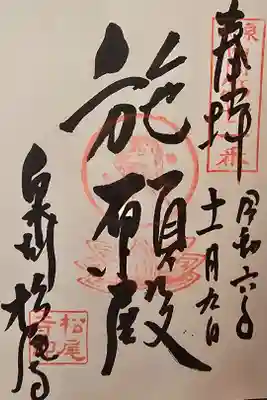 奉拝
令和六年
十一月九日
施願殿
泉州 松尾寺
松尾寺印